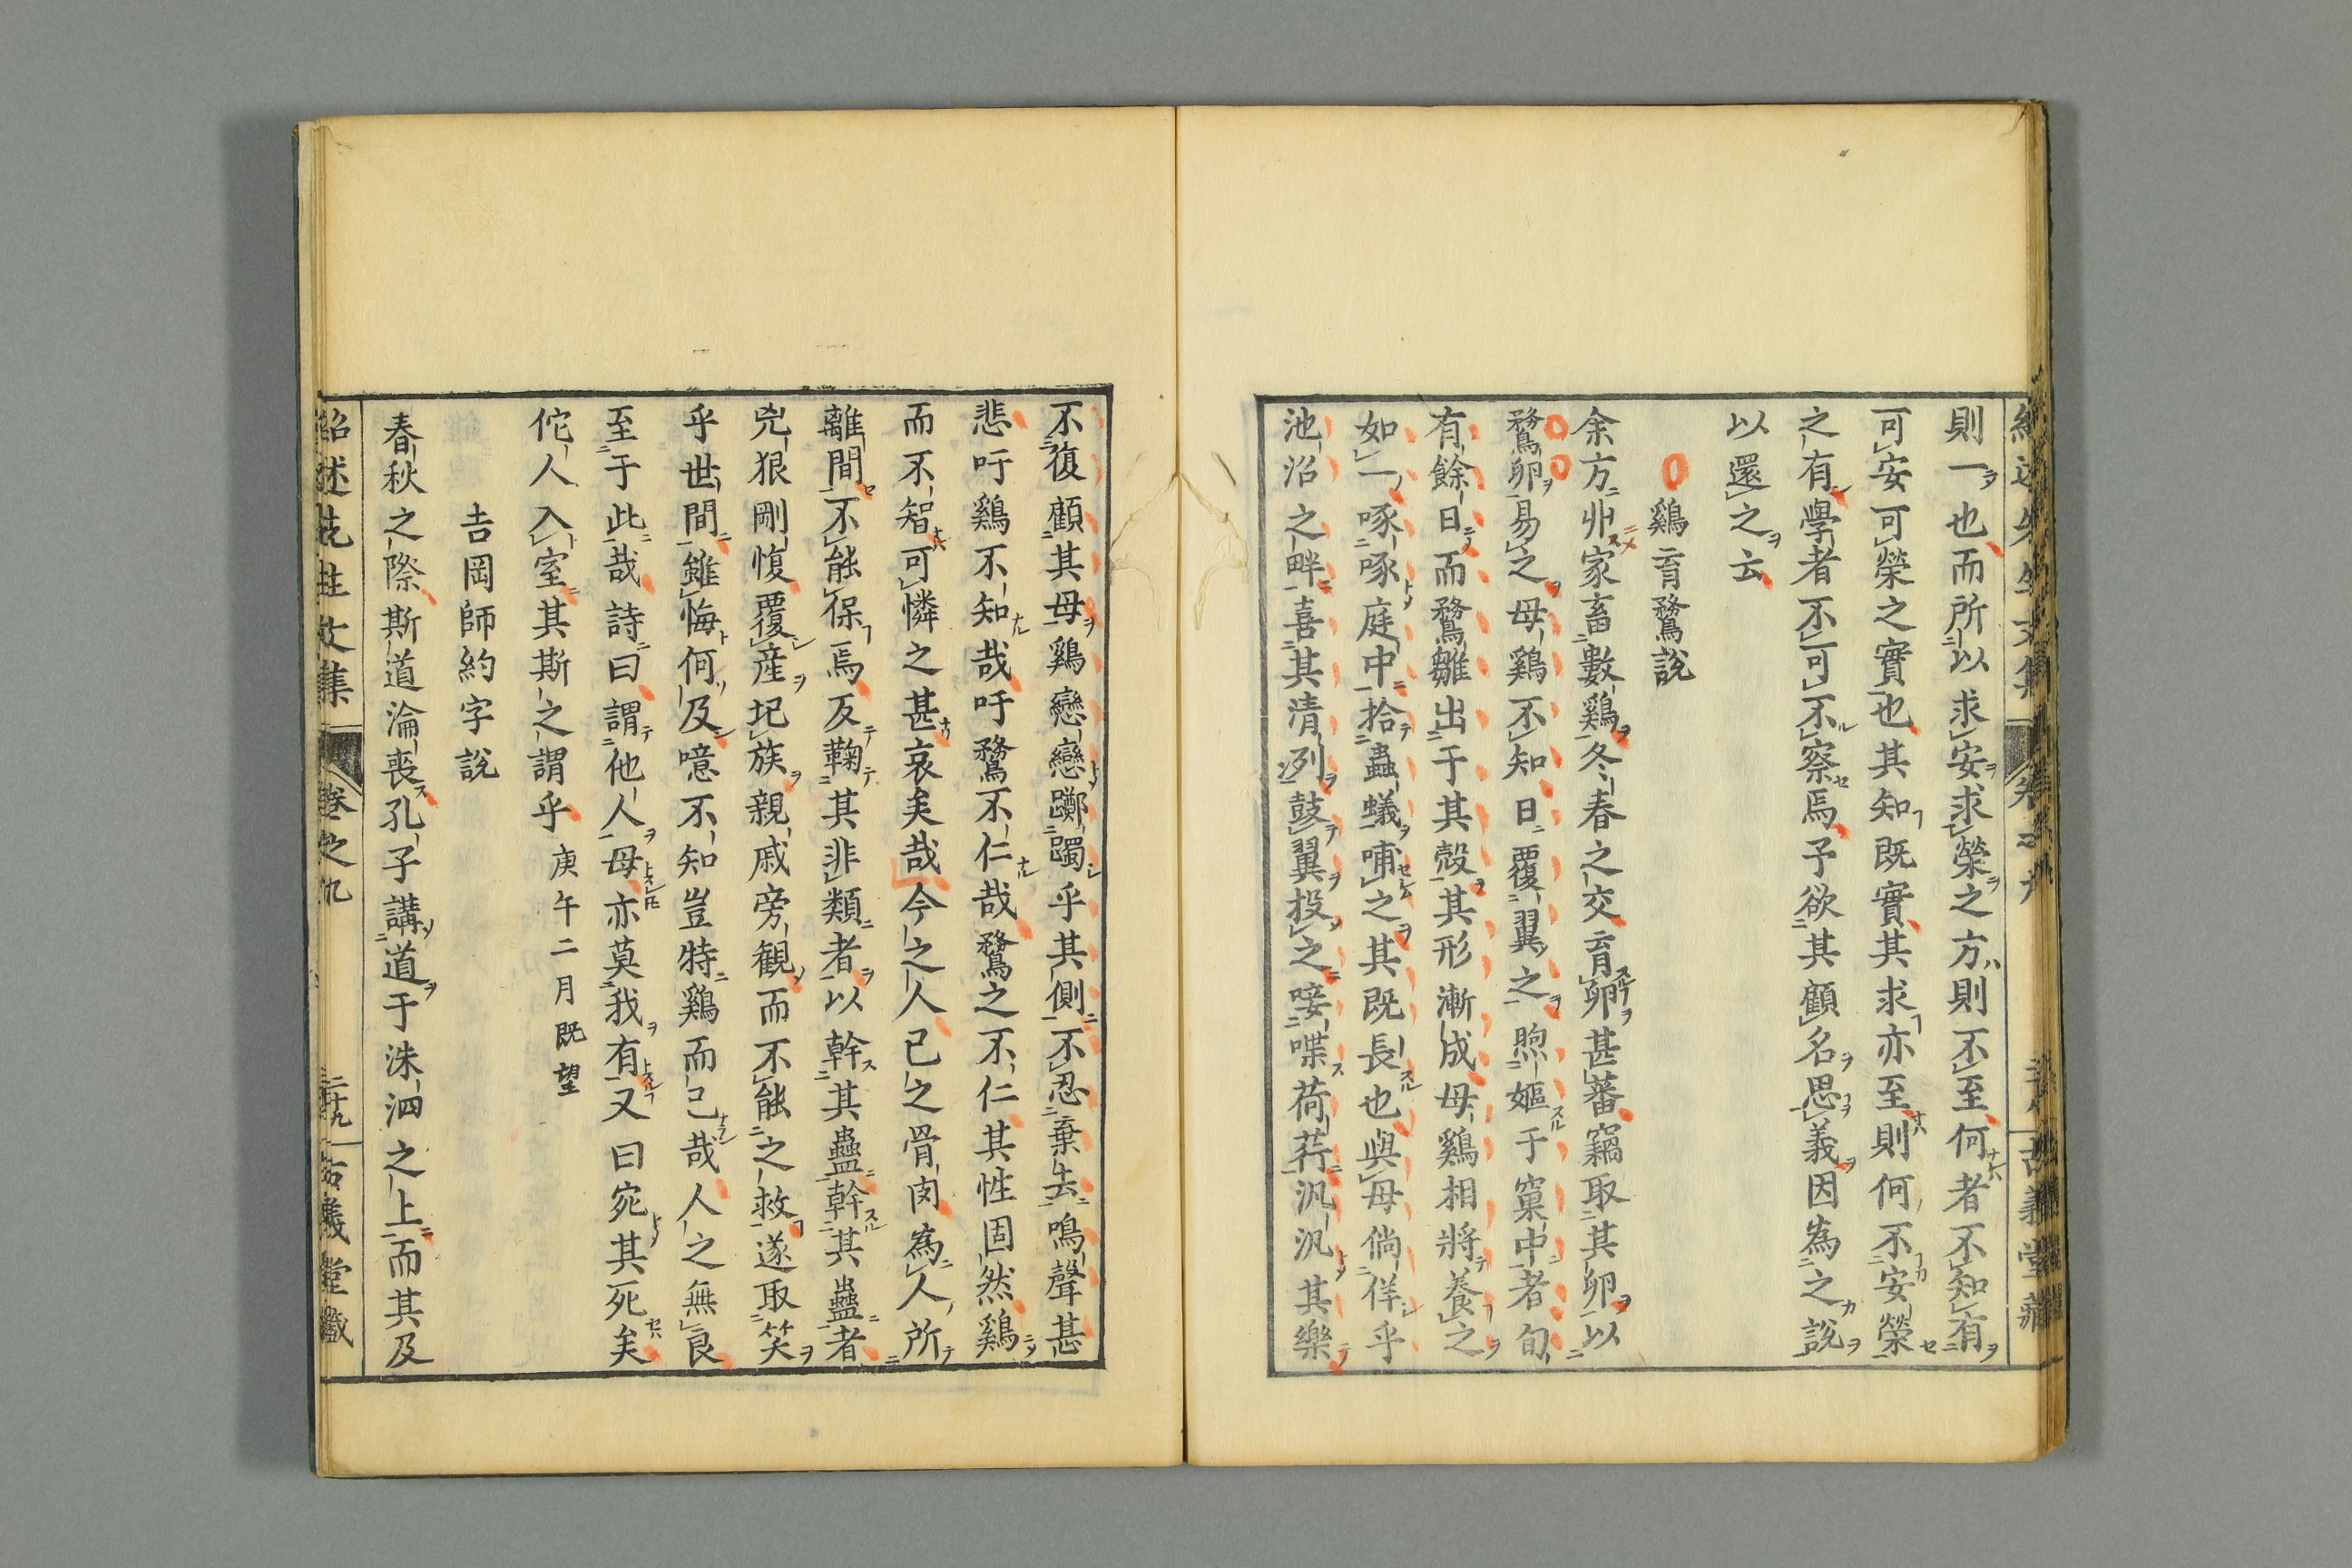 則一也而所以求安求榮之方則不至何者不知有
可安可榮之實也其知既實其求亦至則何不安榮
之有學者不可不察焉予欲其顧名思義因為之說
以還之云
鷄育鶩說
余方丱家畜數鷄冬春之交育卵甚蕃竊取其卵以
鶩卵易之母鷄不知日覆翼之煦嫗于窠中者旬
有餘日而鶩雛出于其殼其形漸成母鷄相將養之
如一啄啄庭中拾蟲蟻哺之其既長也與母倘佯乎
池沼之畔喜其清冽鼓翼投之唼喋荷荇汎汎其樂
不復顧其母鷄戀戀躑躅乎其側不忍棄去鳴聲甚
悲吁鷄不知哉吁鶩不仁哉鶩之不仁其性固然鷄
而不智可憐之甚哀矣哉今之人已之骨肉為人所
離間不能保焉反鞠其非類者以幹其蠱幹其蠱者
兇狠剛愎覆產圮族親戚旁觀而不能之救遂取笑
乎世間雖悔何及噫不知豈特鷄而已哉人之無良
至于此哉詩曰謂他人母亦莫我有又曰宛其死矣
佗人入室其斯之謂乎 庚午二月既望
吉岡師約字說
春秋之際斯道淪喪孔子講道于洙泗之上而其及
紹述先生文集 卷之九 二十九 古義堂藏